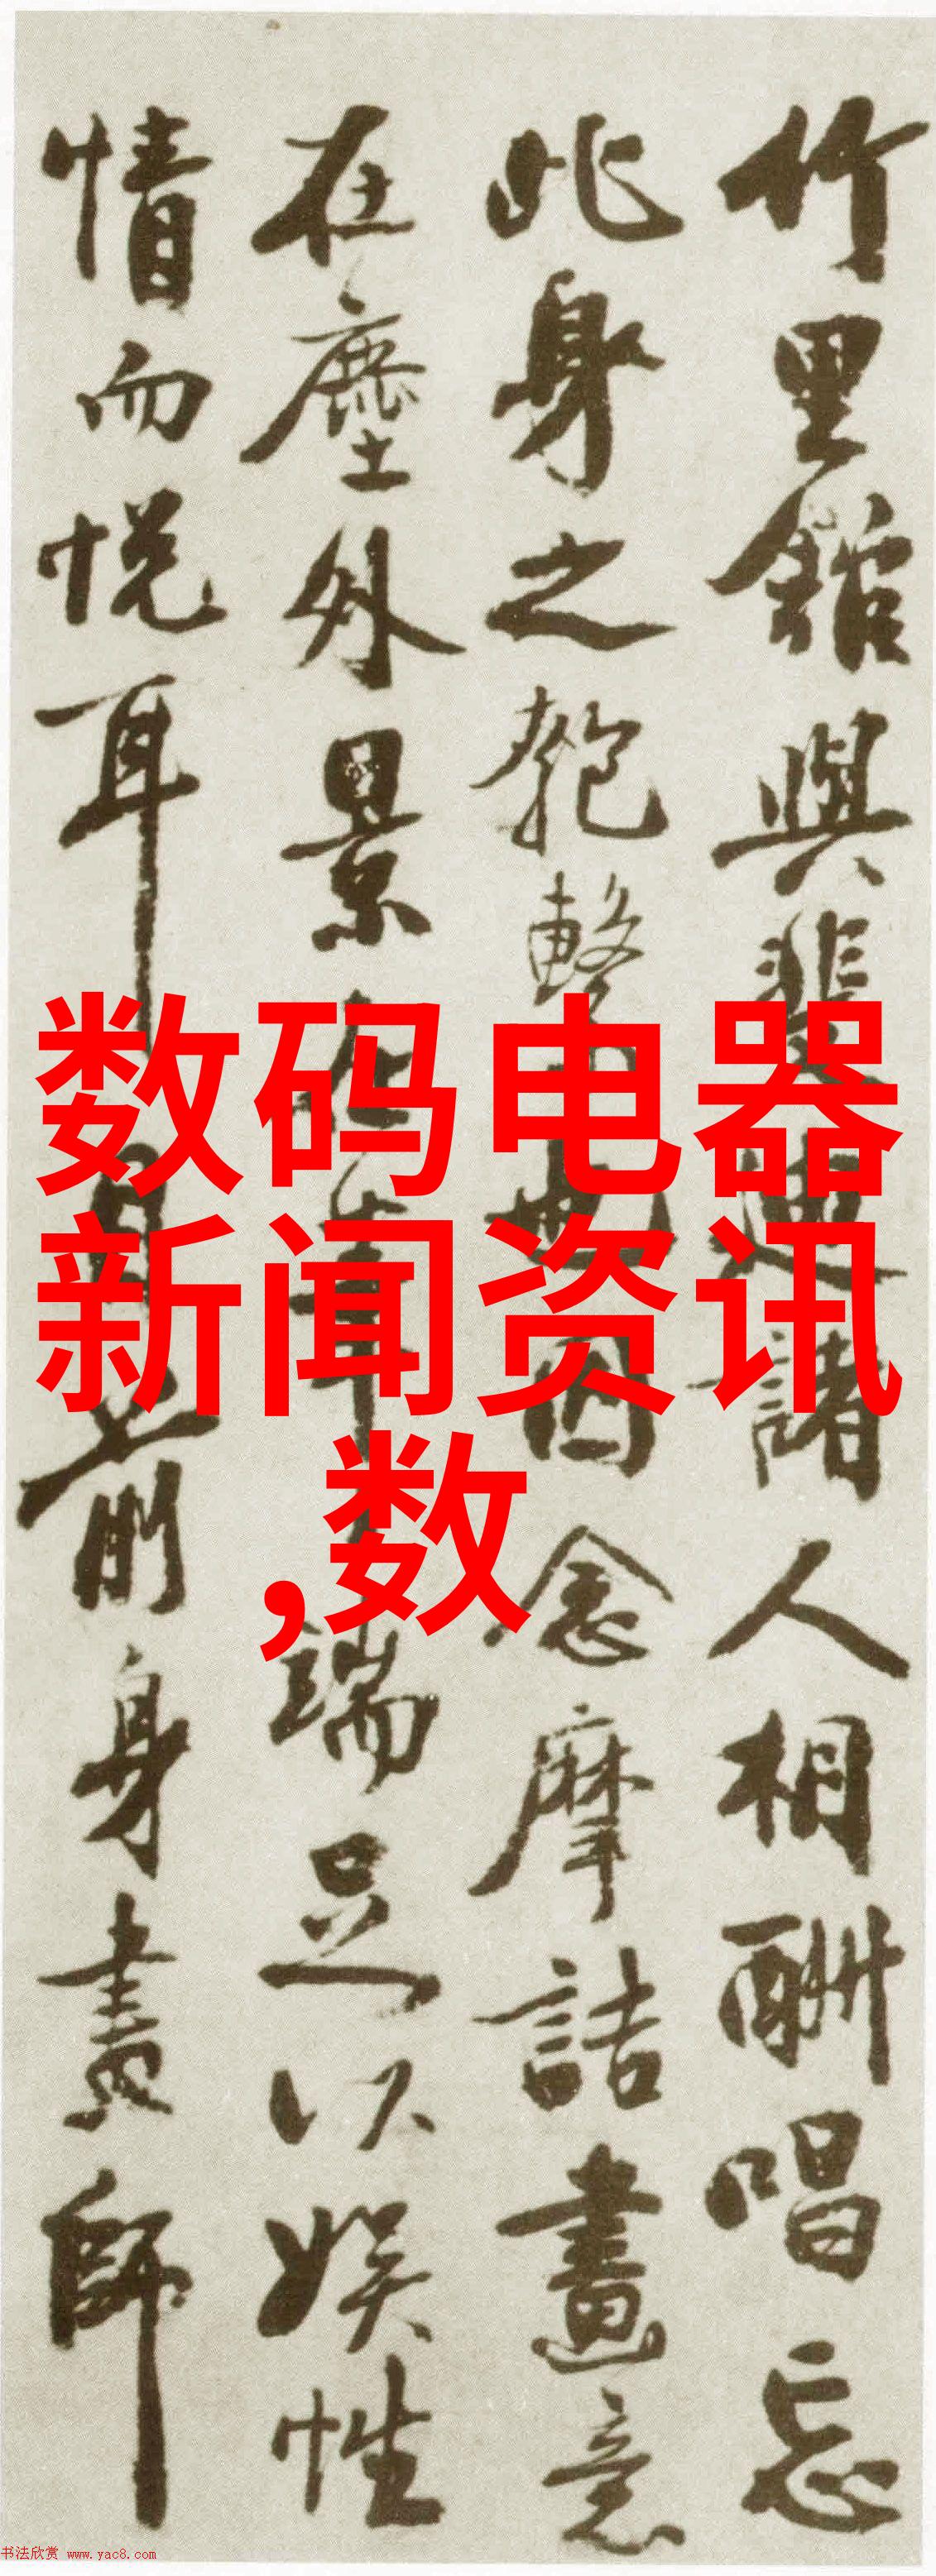 竹里館與裴迪諸人相酬唱忘
此身之匏繫也因念摩詰畫意
在塵外景在筆端足以娛性
情而悅耳目前身畫師
数码电器
新闻资讯
,数
书法欣赏 www.yac8.com